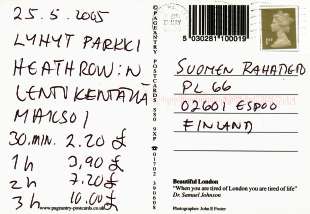 25.5.2005
LYHYT PARKKI
HEATHROW:N
LENTOKENTÄLLÄ
MAKSOI
30 MIN. 2.20 £
1 h 3,90 £
2 h 7.20 £
3 h 10.00 £
www.pageantry-postcards.co.uk
© PAGEANTRY POSTCARDS
5 030281 100019
1st
SUOMEN RAHATIETO
PL 66
02601 ESPOO
FINLAND
Beautiful London
"When you are tired of London you are tired of life"
Dr. Samuel Johnson
Photographer: John B Foster